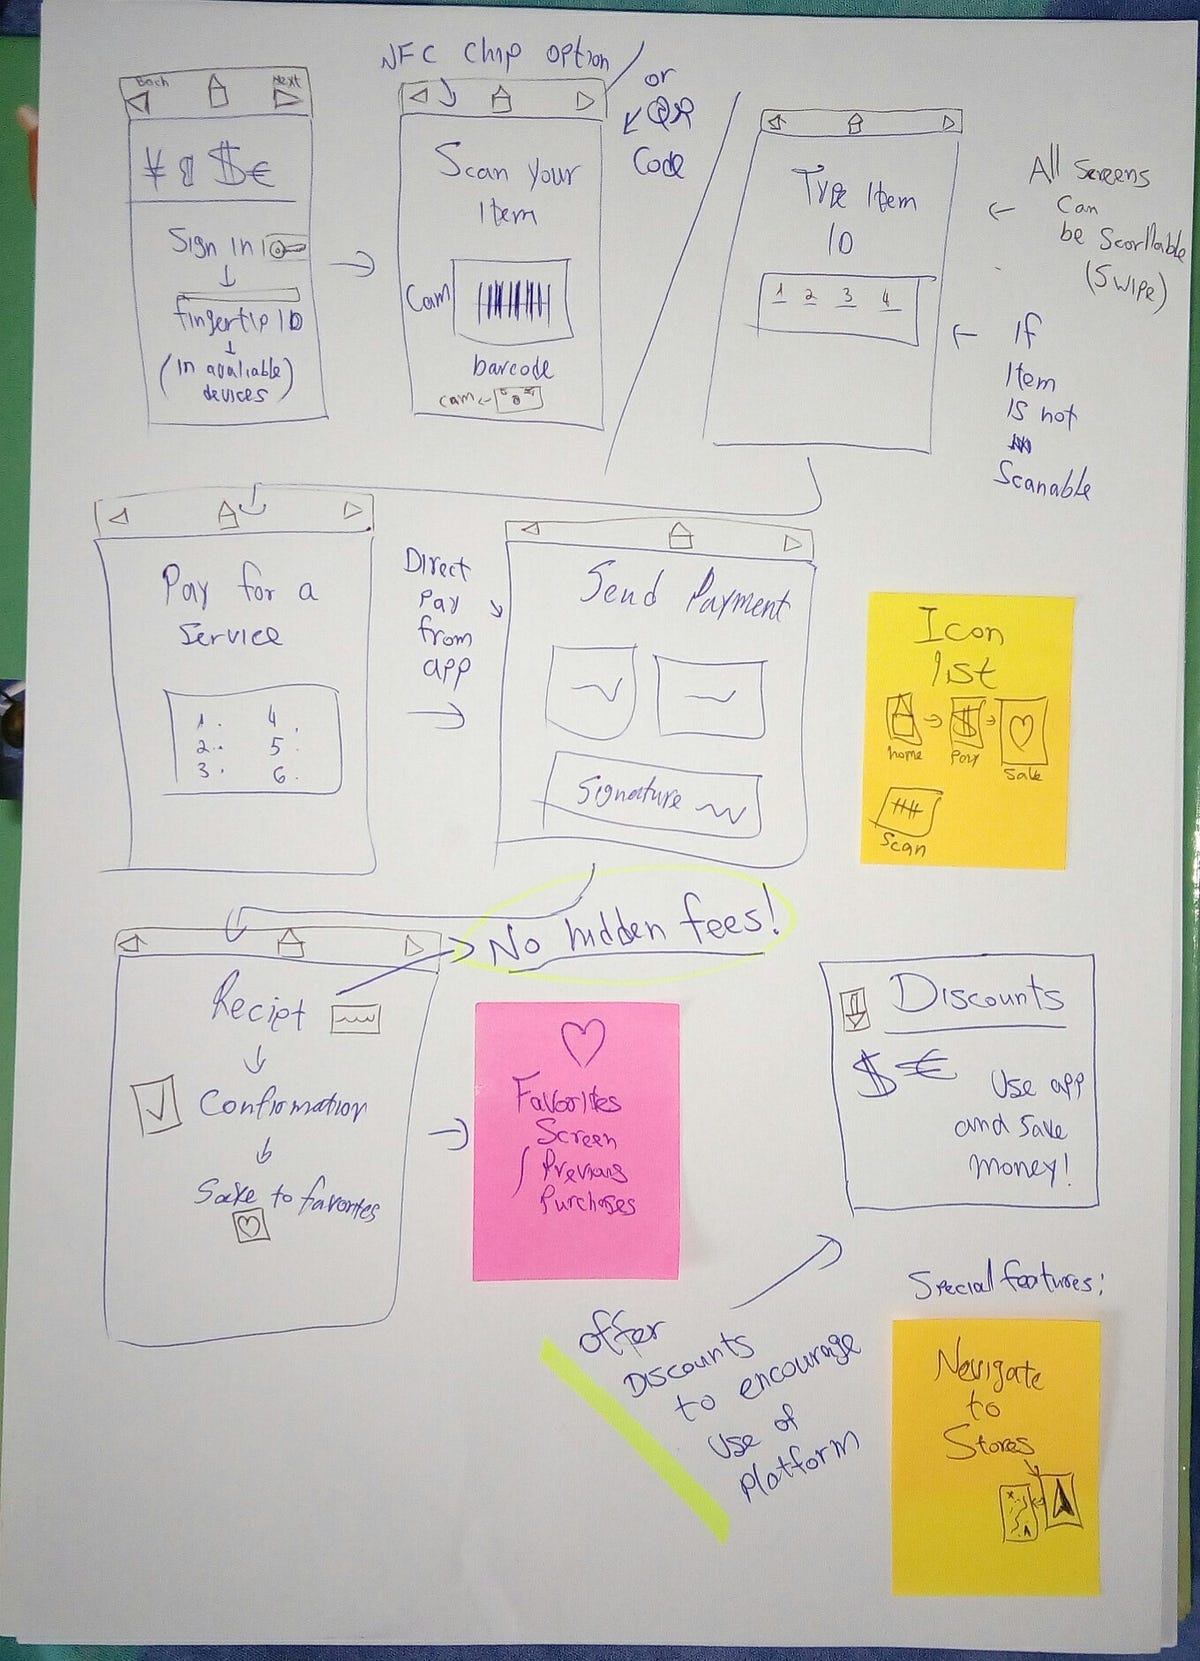 Back
Next
¥ $ €
Sign in
fingertip ID
(In avaliable)
devices
NFC Chip option
or
QR
Code
Scan your
Item
Cam
barcode
cam
Type Item
ID
1 2 3 4
All Screens
Can
be Scorllable
(Swipe)
If
Item
Is not
Scanable
Pay for a
Service
1. 4.
2. 5.
3. 6.
Direct
Pay
from
app
Send Payment
Signature
Icon
list
home
Pay
Save
Scan
No hidden fees!
Reciept
Confirmation
Save to favorites
Favorites
Screen
/ Previous
Purchases
Discounts
$ €
Use app
and save
money!
Offer
Discounts
to encourage
use of
platform
Special features:
Nevigate
to
Stores